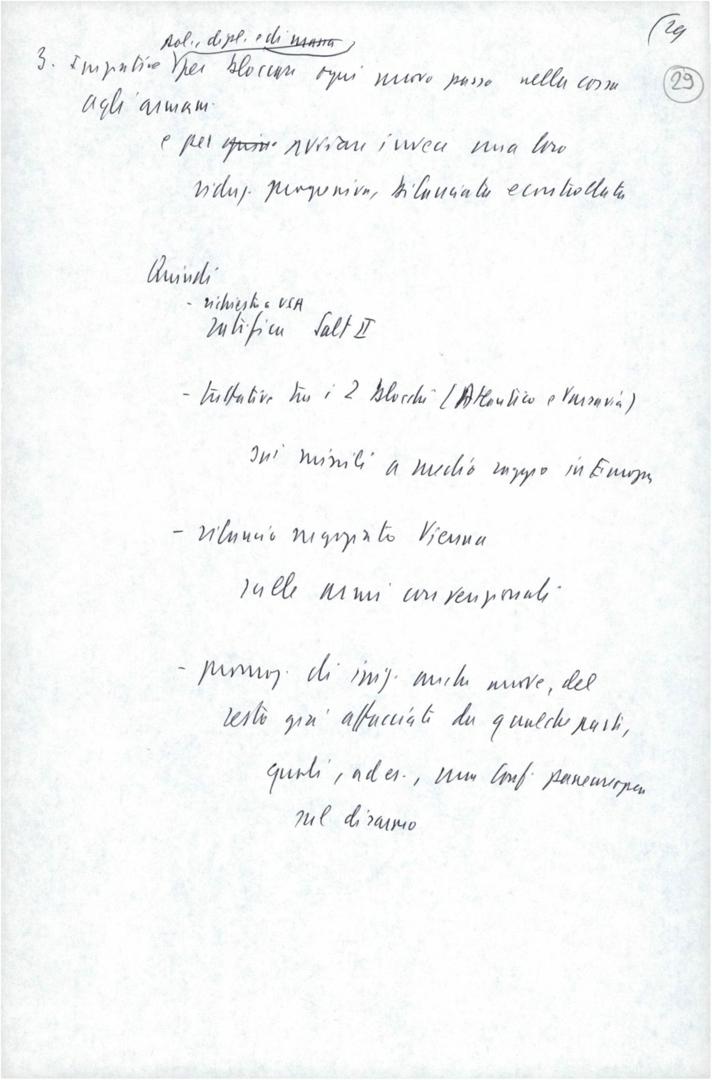 29
29
pol., dipl. e di massa
3. Iniziative per bloccare ogni nuovo passo nella corsa
agli armam.
e per avviare invece una loro
riduz. progressiva, bilanciata e controllata
Quindi
- richiesta USA
ratifica Salt II
- trattative tra i 2 blocchi (Atlantico e Varsavia)
sui missili a medio raggio in Europa
- rilancio negoziato Vienna
sulle armi convenzionali
- promoz. di iniz. anche nuove, del
resto già affacciate da qualche parte,
quali, ad es., una Conf. paneuropea
sul disarmo